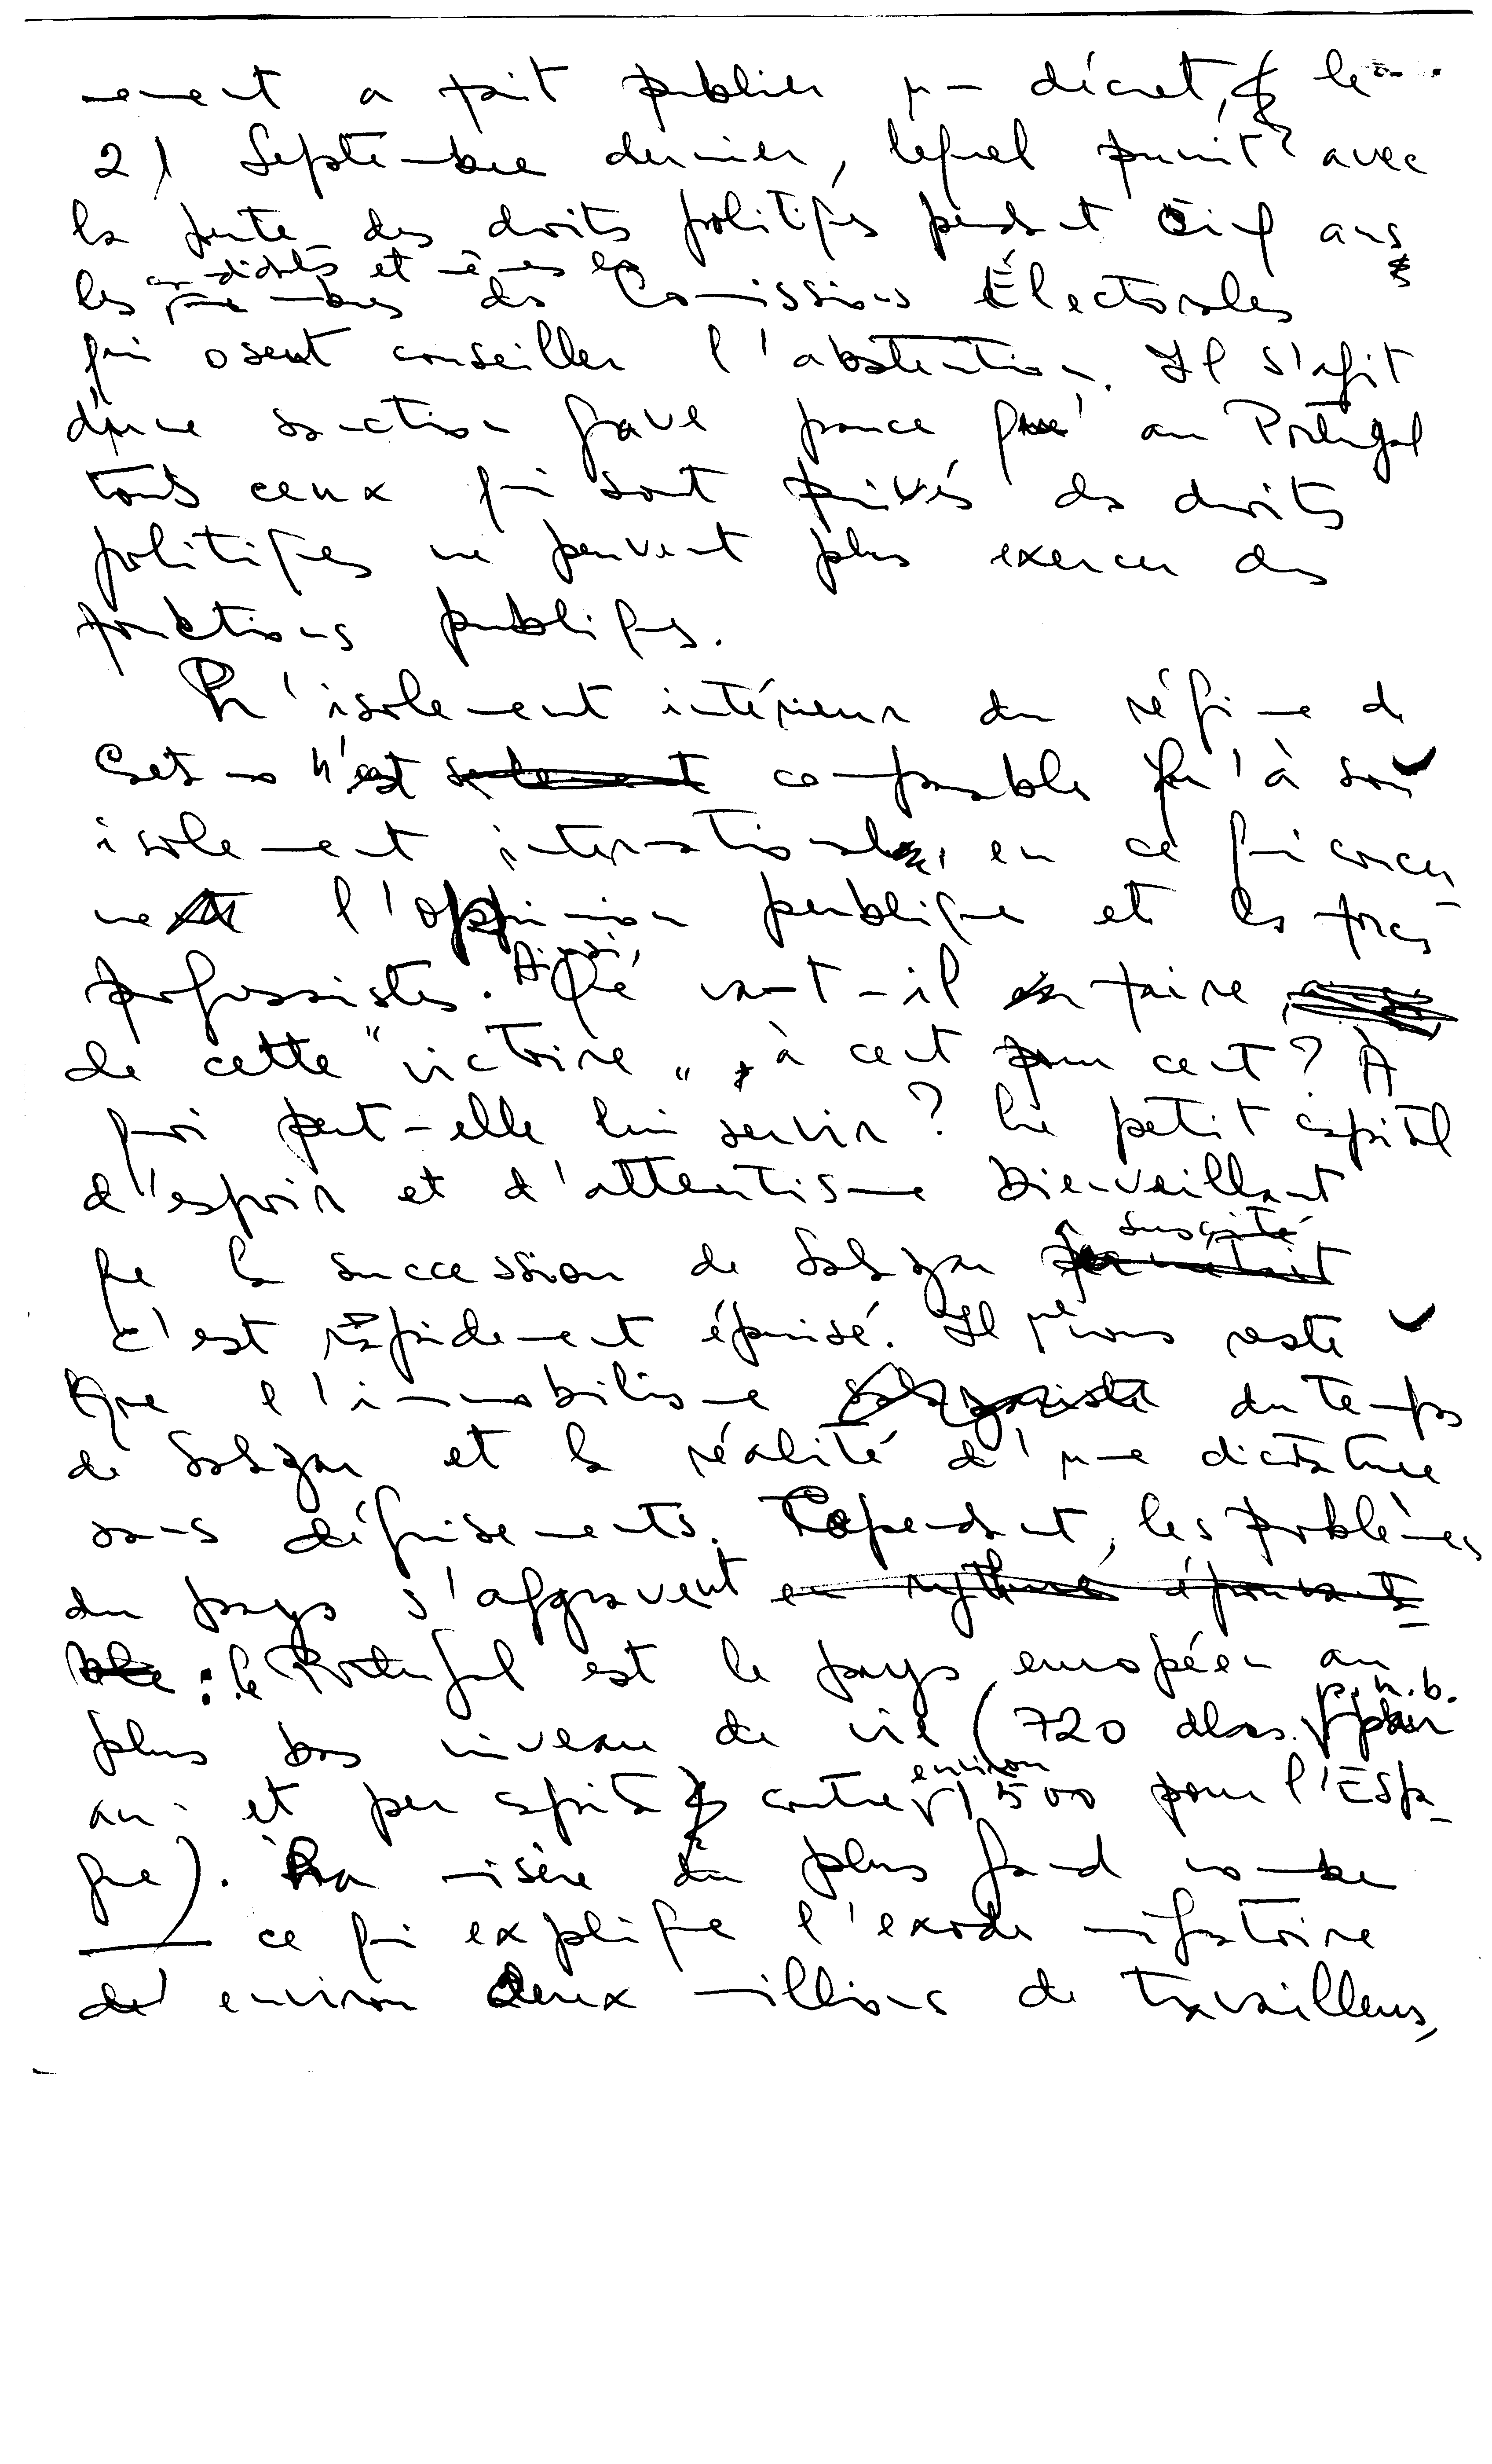 -ement a fait publier un décret, le
21 Septembre dernier, lequel punit avec
la perte des droits politiques pendant cinq ans
candidats et mêmes les
les membres des Comissions Électorales
qui osent conseiller l'abstention. Il s'agit
d'une sanction grave parce que au Portugal
tous ceux qui sont privés des droits
politiques ne peuvent plus exercer des
fonctions publiques.
L'isolement intérieur du régime de
Caetano n'est seulement comparable qu'à son
isolement international, en ce qui concer-
ne l'oppinion publique et les forces
progressistes. Ainsi, Qué vat-il faire
de cette "victoire", à cent pour cent? À
quoi peut-elle lui servir? Le petit capital
d'espoir et d'attentisme bienveillant
a suscité
que la succession de Salazar permettait
c'est rapidement épuisé. Il ne nous reste
que l'immobilisme salazariste du temps
de Salazar et la réalité d'une dictature
sans déguisements. Cependant, les problèmes
du pays s'aggravent en rythme épouvanta-
ble : le Portugal est le pays européen au
p.n.b.
plus bas niveau de vie (720 dlos. par
environ
an et per capita contre 1500 pour l'Espa-
gne). La misère du plus grand nombre
ce qui explique l'exode migratoire
de environ deux millions de travailleurs,